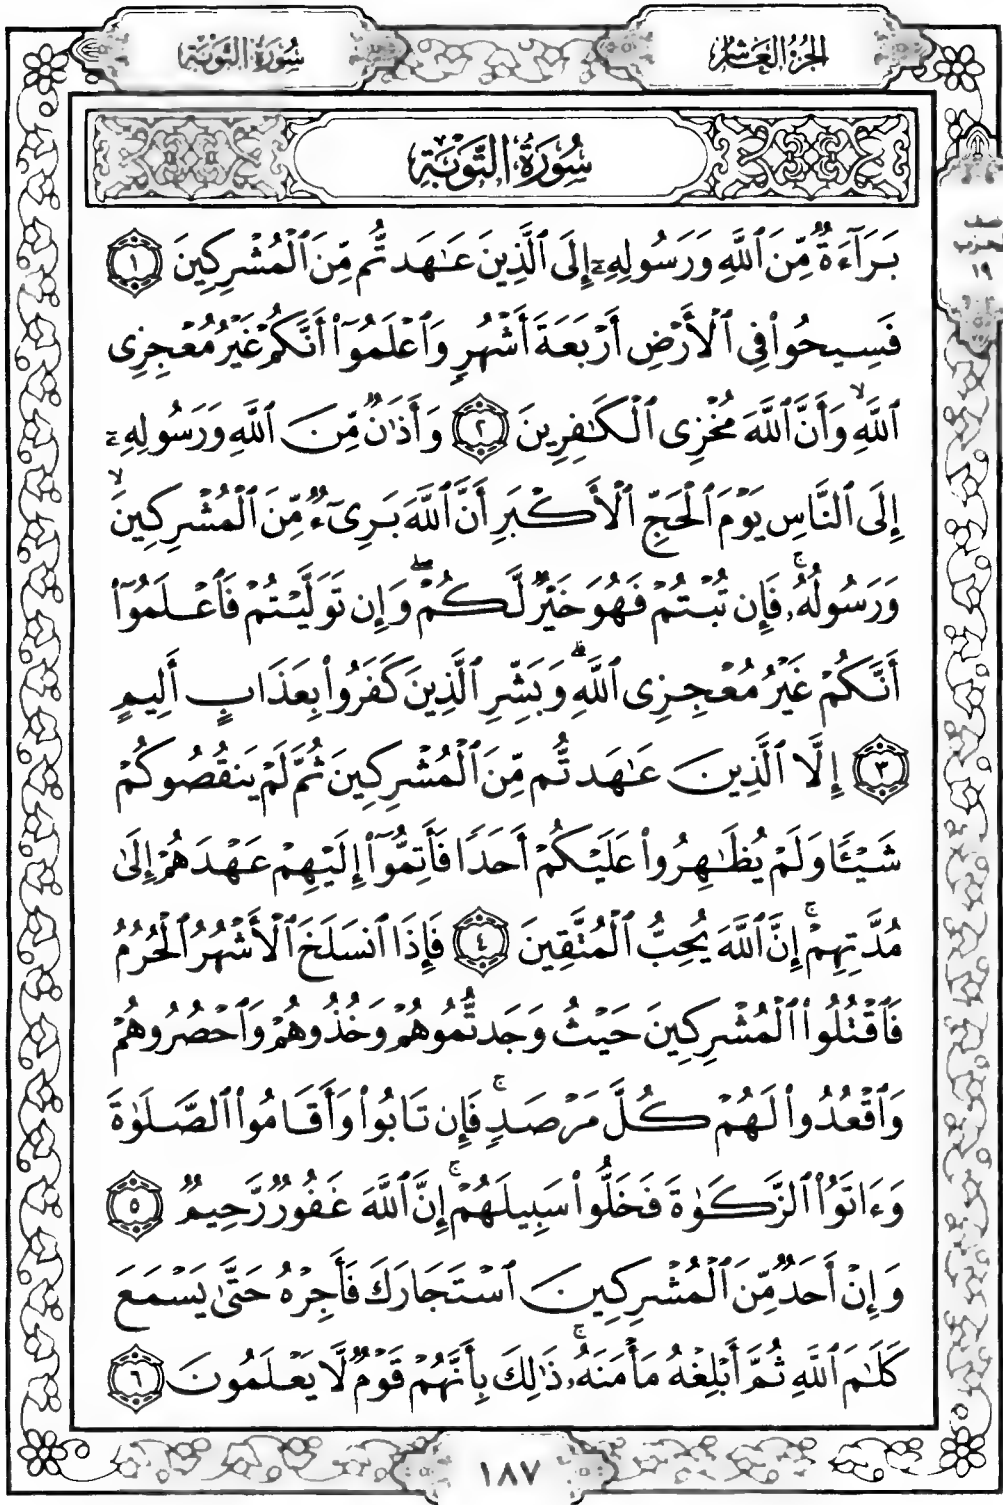 الجزء العاشر
سورة التوبة
سُورَةُ التَّوْبَةِ
بَرَآءَةٌ مِّنَ ٱللَّهِ وَرَسُولِهِۦٓ إِلَى ٱلَّذِينَ عَٰهَدتُّم مِّنَ ٱلْمُشْرِكِينَ ١
فَسِيحُوا۟ فِى ٱلْأَرْضِ أَرْبَعَةَ أَشْهُرٍ وَٱعْلَمُوٓا۟ أَنَّكُمْ غَيْرُ مُعْجِزِى
ٱللَّهِ ۙ وَأَنَّ ٱللَّهَ مُخْزِى ٱلْكَٰفِرِينَ ٢ وَأَذَٰنٌ مِّنَ ٱللَّهِ وَرَسُولِهِۦٓ
إِلَى ٱلنَّاسِ يَوْمَ ٱلْحَجِّ ٱلْأَكْبَرِ أَنَّ ٱللَّهَ بَرِىٓءٌ مِّنَ ٱلْمُشْرِكِينَ ۙ
وَرَسُولُهُۥ ۚ فَإِن تُبْتُمْ فَهُوَ خَيْرٌ لَّكُمْ ۖ وَإِن تَوَلَّيْتُمْ فَٱعْلَمُوٓا۟
أَنَّكُمْ غَيْرُ مُعْجِزِى ٱللَّهِ ۗ وَبَشِّرِ ٱلَّذِينَ كَفَرُوا۟ بِعَذَابٍ أَلِيمٍ
٣ إِلَّا ٱلَّذِينَ عَٰهَدتُّم مِّنَ ٱلْمُشْرِكِينَ ثُمَّ لَمْ يَنقُصُوكُمْ
شَيْـًٔا وَلَمْ يُظَٰهِرُوا۟ عَلَيْكُمْ أَحَدًا فَأَتِمُّوٓا۟ إِلَيْهِمْ عَهْدَهُمْ إِلَىٰ
مُدَّتِهِمْ ۚ إِنَّ ٱللَّهَ يُحِبُّ ٱلْمُتَّقِينَ ٤ فَإِذَا ٱنسَلَخَ ٱلْأَشْهُرُ ٱلْحُرُمُ
فَٱقْتُلُوا۟ ٱلْمُشْرِكِينَ حَيْثُ وَجَدتُّمُوهُمْ وَخُذُوهُمْ وَٱحْصُرُوهُمْ
وَٱقْعُدُوا۟ لَهُمْ كُلَّ مَرْصَدٍ ۚ فَإِن تَابُوا۟ وَأَقَامُوا۟ ٱلصَّلَوٰةَ
وَءَاتَوُا۟ ٱلزَّكَوٰةَ فَخَلُّوا۟ سَبِيلَهُمْ ۚ إِنَّ ٱللَّهَ غَفُورٌ رَّحِيمٌ ٥
وَإِنْ أَحَدٌ مِّنَ ٱلْمُشْرِكِينَ ٱسْتَجَارَكَ فَأَجِرْهُ حَتَّىٰ يَسْمَعَ
كَلَٰمَ ٱللَّهِ ثُمَّ أَبْلِغْهُ مَأْمَنَهُۥ ۚ ذَٰلِكَ بِأَنَّهُمْ قَوْمٌ لَّا يَعْلَمُونَ ٦
١٩
١٨٧